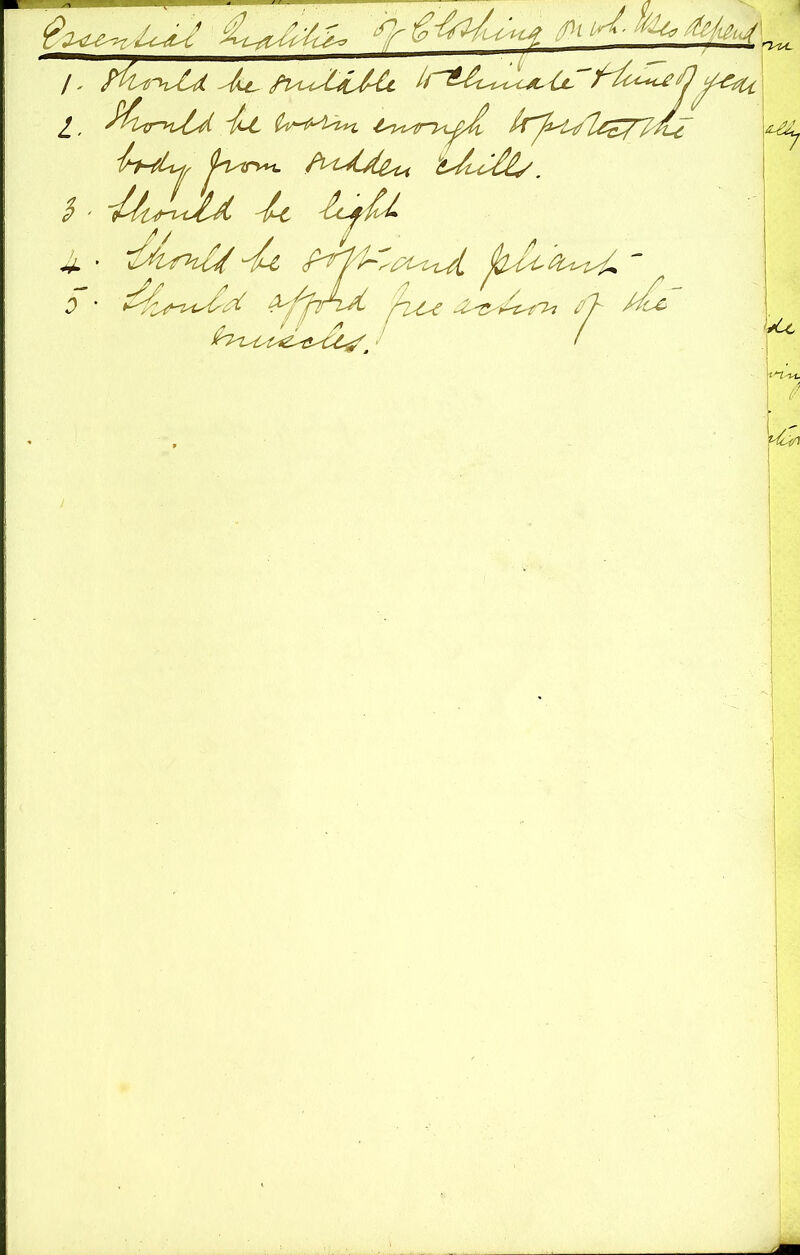 Essential Qualities of Clothing on wh. Uses depend
1. Should be suitable to climate & time of year
2. Should be warm enough to protect the
body from sudden chills.
3. Should be light
4. Should be soft and pliant
5. Should afford free action of the
muscles.